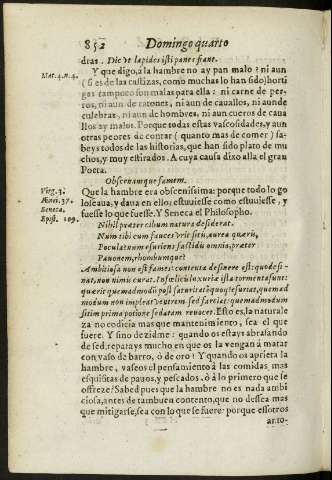 852 Domingo quarto
dras. Dic vt lapides isti panes fiant.
Mat. 4. n. 4.
Y que digo, a la hambre no ay pan malo? ni aun
(si es de las castizas, como muchas lo han sido) horti
gas tampoco son malas para ella: ni carne de per-
ros, ni aun de ratones, ni aun de cauallos, ni aun de
culebras, ni aun de hombres, ni aun cueros de caua
llos ay malos. Porque todas estas vascosidades, y aun
otras peores de contar (quanto mas de comer) sa-
beys todos de las historias, que han sido plato de mu
chos, y muy estirados. A cuya causa dixo alla el gran
Poeta.
Obscenamque famem.
Virg. 3.
Æneï. 37.
Seneca.
Epist. 109.
Que la hambre era obscenissima: porque todo lo go
loseaua, y daua en ello; estuuiesse como estuuiesse, y
fuesse lo que fuesse. Y Seneca el Philosopho.
Nihil præter cibum natura desiderat.
Num tibi cum fauces vrit sitis, aurea quæris,
Pocula? num esuriens fastidis omnia, præter
Pauonem, rhombumque?
Ambitiosa non est fames: contenta desinere est: quo desi-
nat, non nimis curat. Infelicis luxuriæ ista tormenta sunt:
quærit quemadmodum post saturitatem quoque esuriat, quemad
modum non impleat ventrem sed farciat: quemadmodum
sitim prima potione sedatam reuocet. Esto es, la naturale
za no codicia mas que mantenimiento, sea el que
fuere. Y sino dezidme: quando os estays abrasando
de sed, reparays mucho en que os la vengan à matar
con vaso de barro, ò de oro? Y quando os aprieta la
hambre, vaseos el pensamiento à las comidas mas
esquisitas de pauos, y pescados, ò à lo primero que se
ofreze? Sabed pues que la hambre no es nada ambi
ciosa, antes de tambuen contento, que no dessea mas
que mitigarse, sea con lo que se fuere: porque essotros
arto-